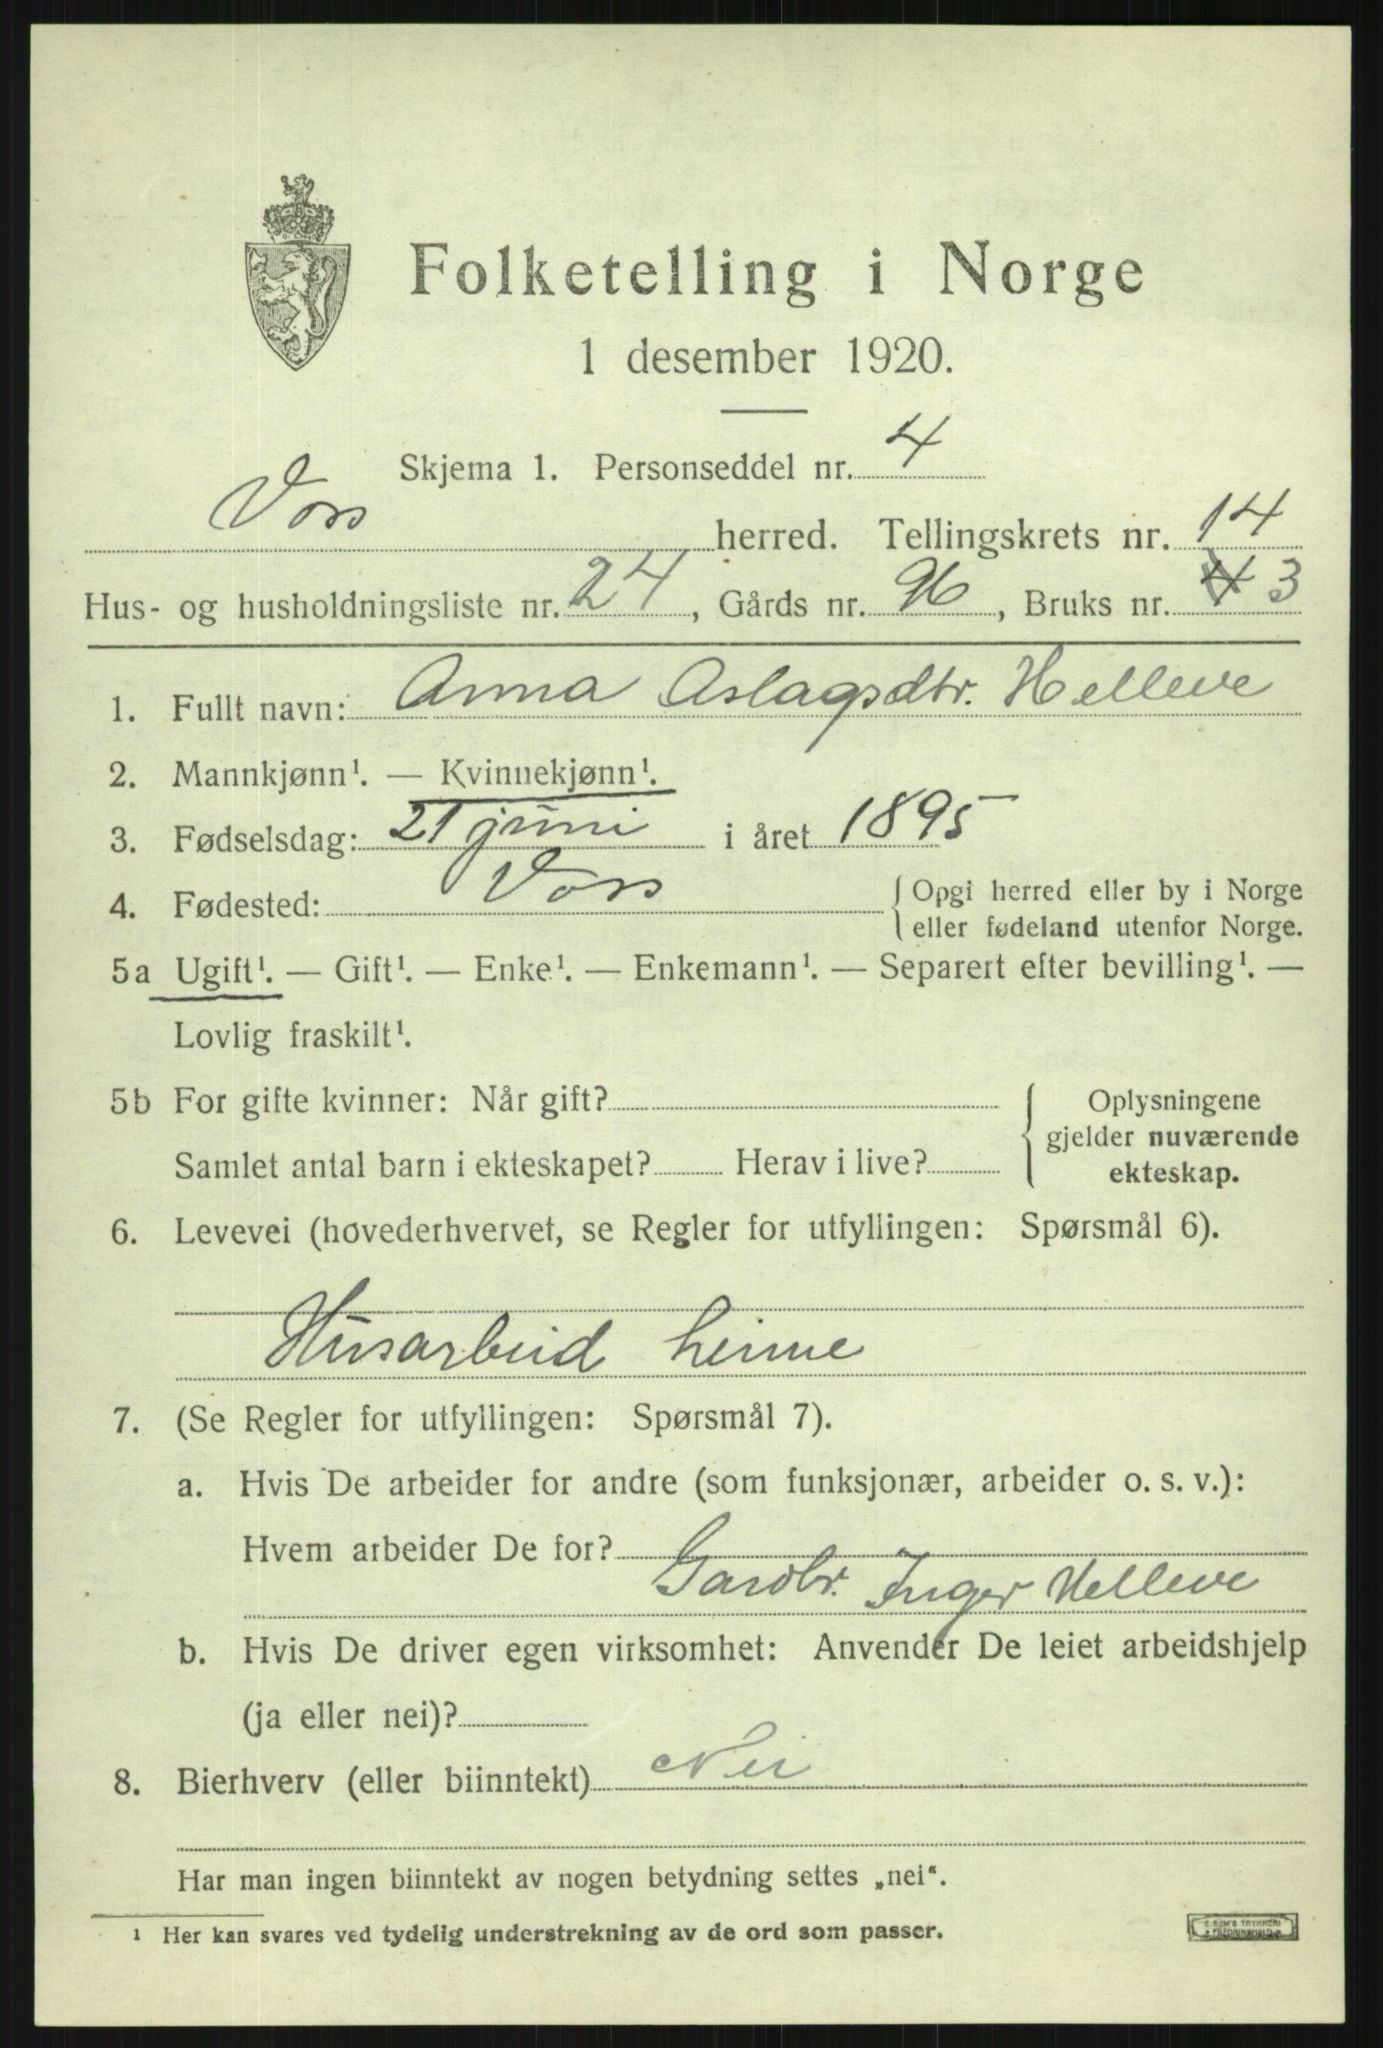 Folketelling i Norge
1 desember 1920.
Skjema 1. Personseddel nr. 4
Voss herred. Tellingskrets nr. 14
Hus- og husholdningsliste nr. 24, Gårds nr. 96, Bruks nr. 4 3
1. Fullt navn: Anna Aslagsdtr. Helleve
2. Mannkjønn¹. — Kvinnekjønn¹.
3. Fødselsdag: 21 juni i året 1895
4. Fødested: Voss { Opgi herred eller by i Norge
eller fødeland utenfor Norge.
5a Ugift¹. — Gift¹. — Enke¹. — Enkemann¹. — Separert efter bevilling¹. —
Lovlig fraskilt¹.
5b For gifte kvinner: Når gift? { Oplysningene
gjelder nuværende
Samlet antal barn i ekteskapet? Herav i live?
ekteskap.
6. Levevei (hovederhvervet, se Regler for utfyllingen: Spørsmål 6).
Husarbeid heime
7. (Se Regler for utfyllingen: Spørsmål 7).
a. Hvis De arbeider for andre (som funksjonær, arbeider o. s. v.):
Hvem arbeider De for?
Gardbr. Inger Helleve
b. Hvis De driver egen virksomhet: Anvender De leiet arbeidshjelp
(ja eller nei)?
8. Bierhverv (eller biinntekt) Nei
Har man ingen biinntekt av nogen betydning settes „nei“.
¹ Her kan svares ved tydelig understrekning av de ord som passer.